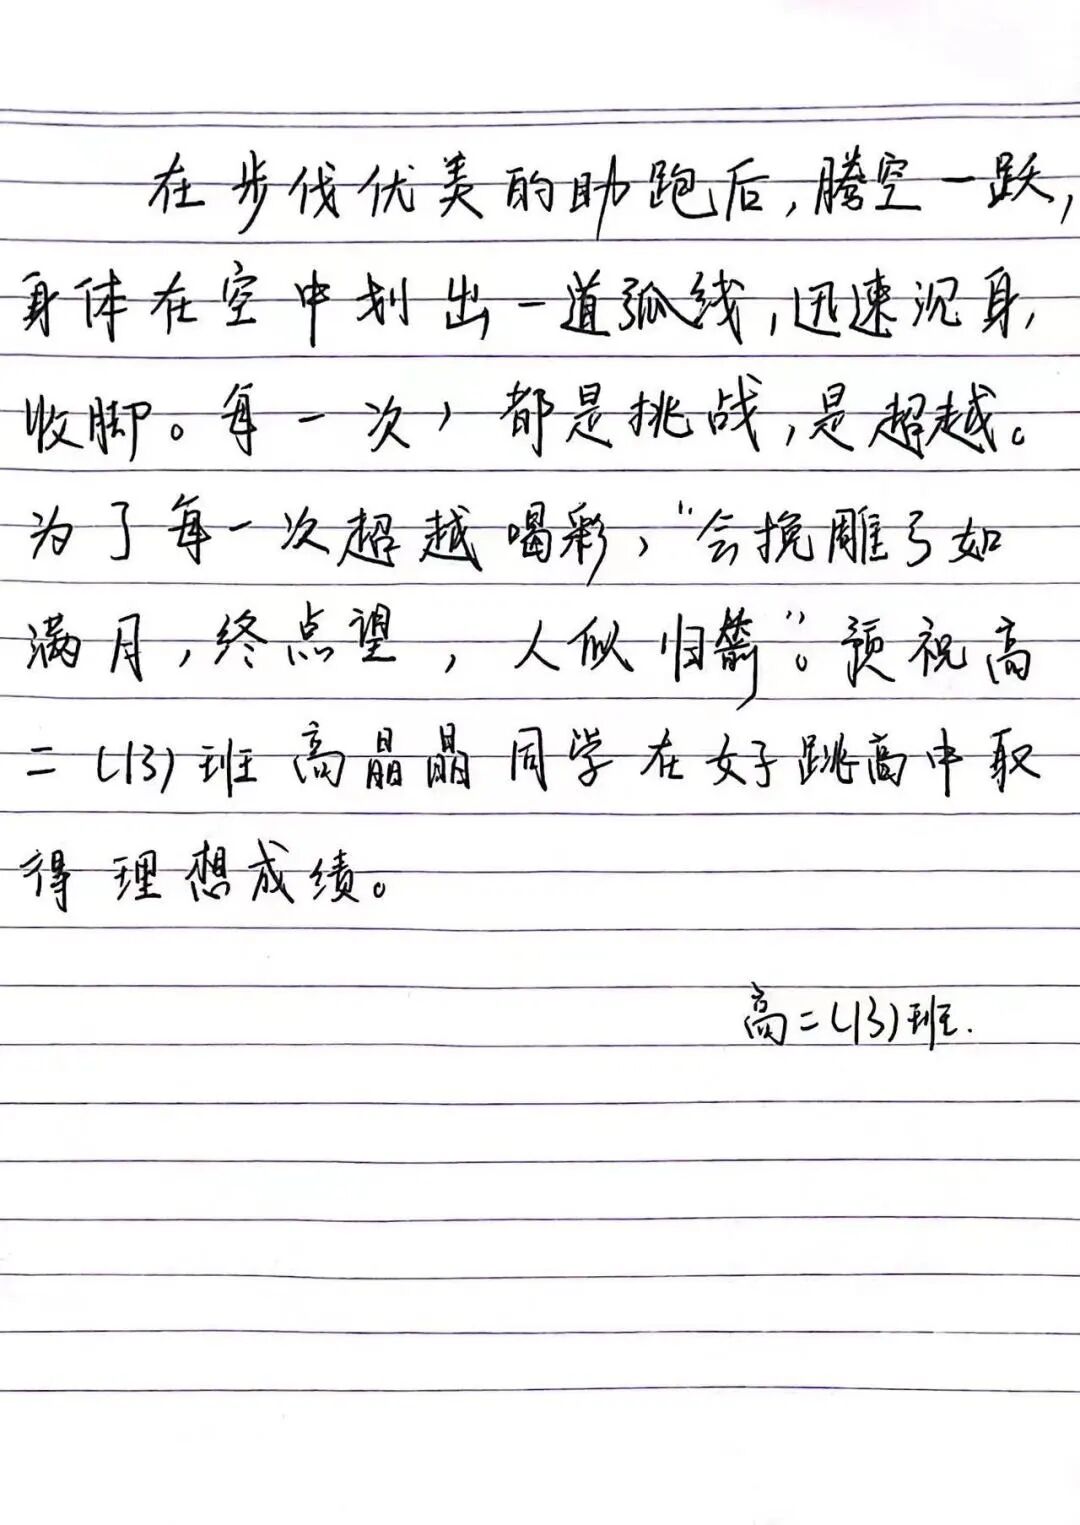 在步伐优美的助跑后,腾空一跃,
身体在空中划出一道弧线,迅速沉身,
收脚。每一次,都是挑战,是超越。
为了每一次超越喝彩,“会挽雕弓如
满月,终点望,人似归箭”。预祝高
二(13)班高晶晶同学在女子跳高中取
得理想成绩。
高二(13)班.